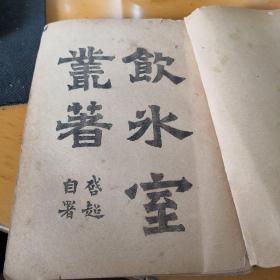 飲冰室
叢著
啓超
自署